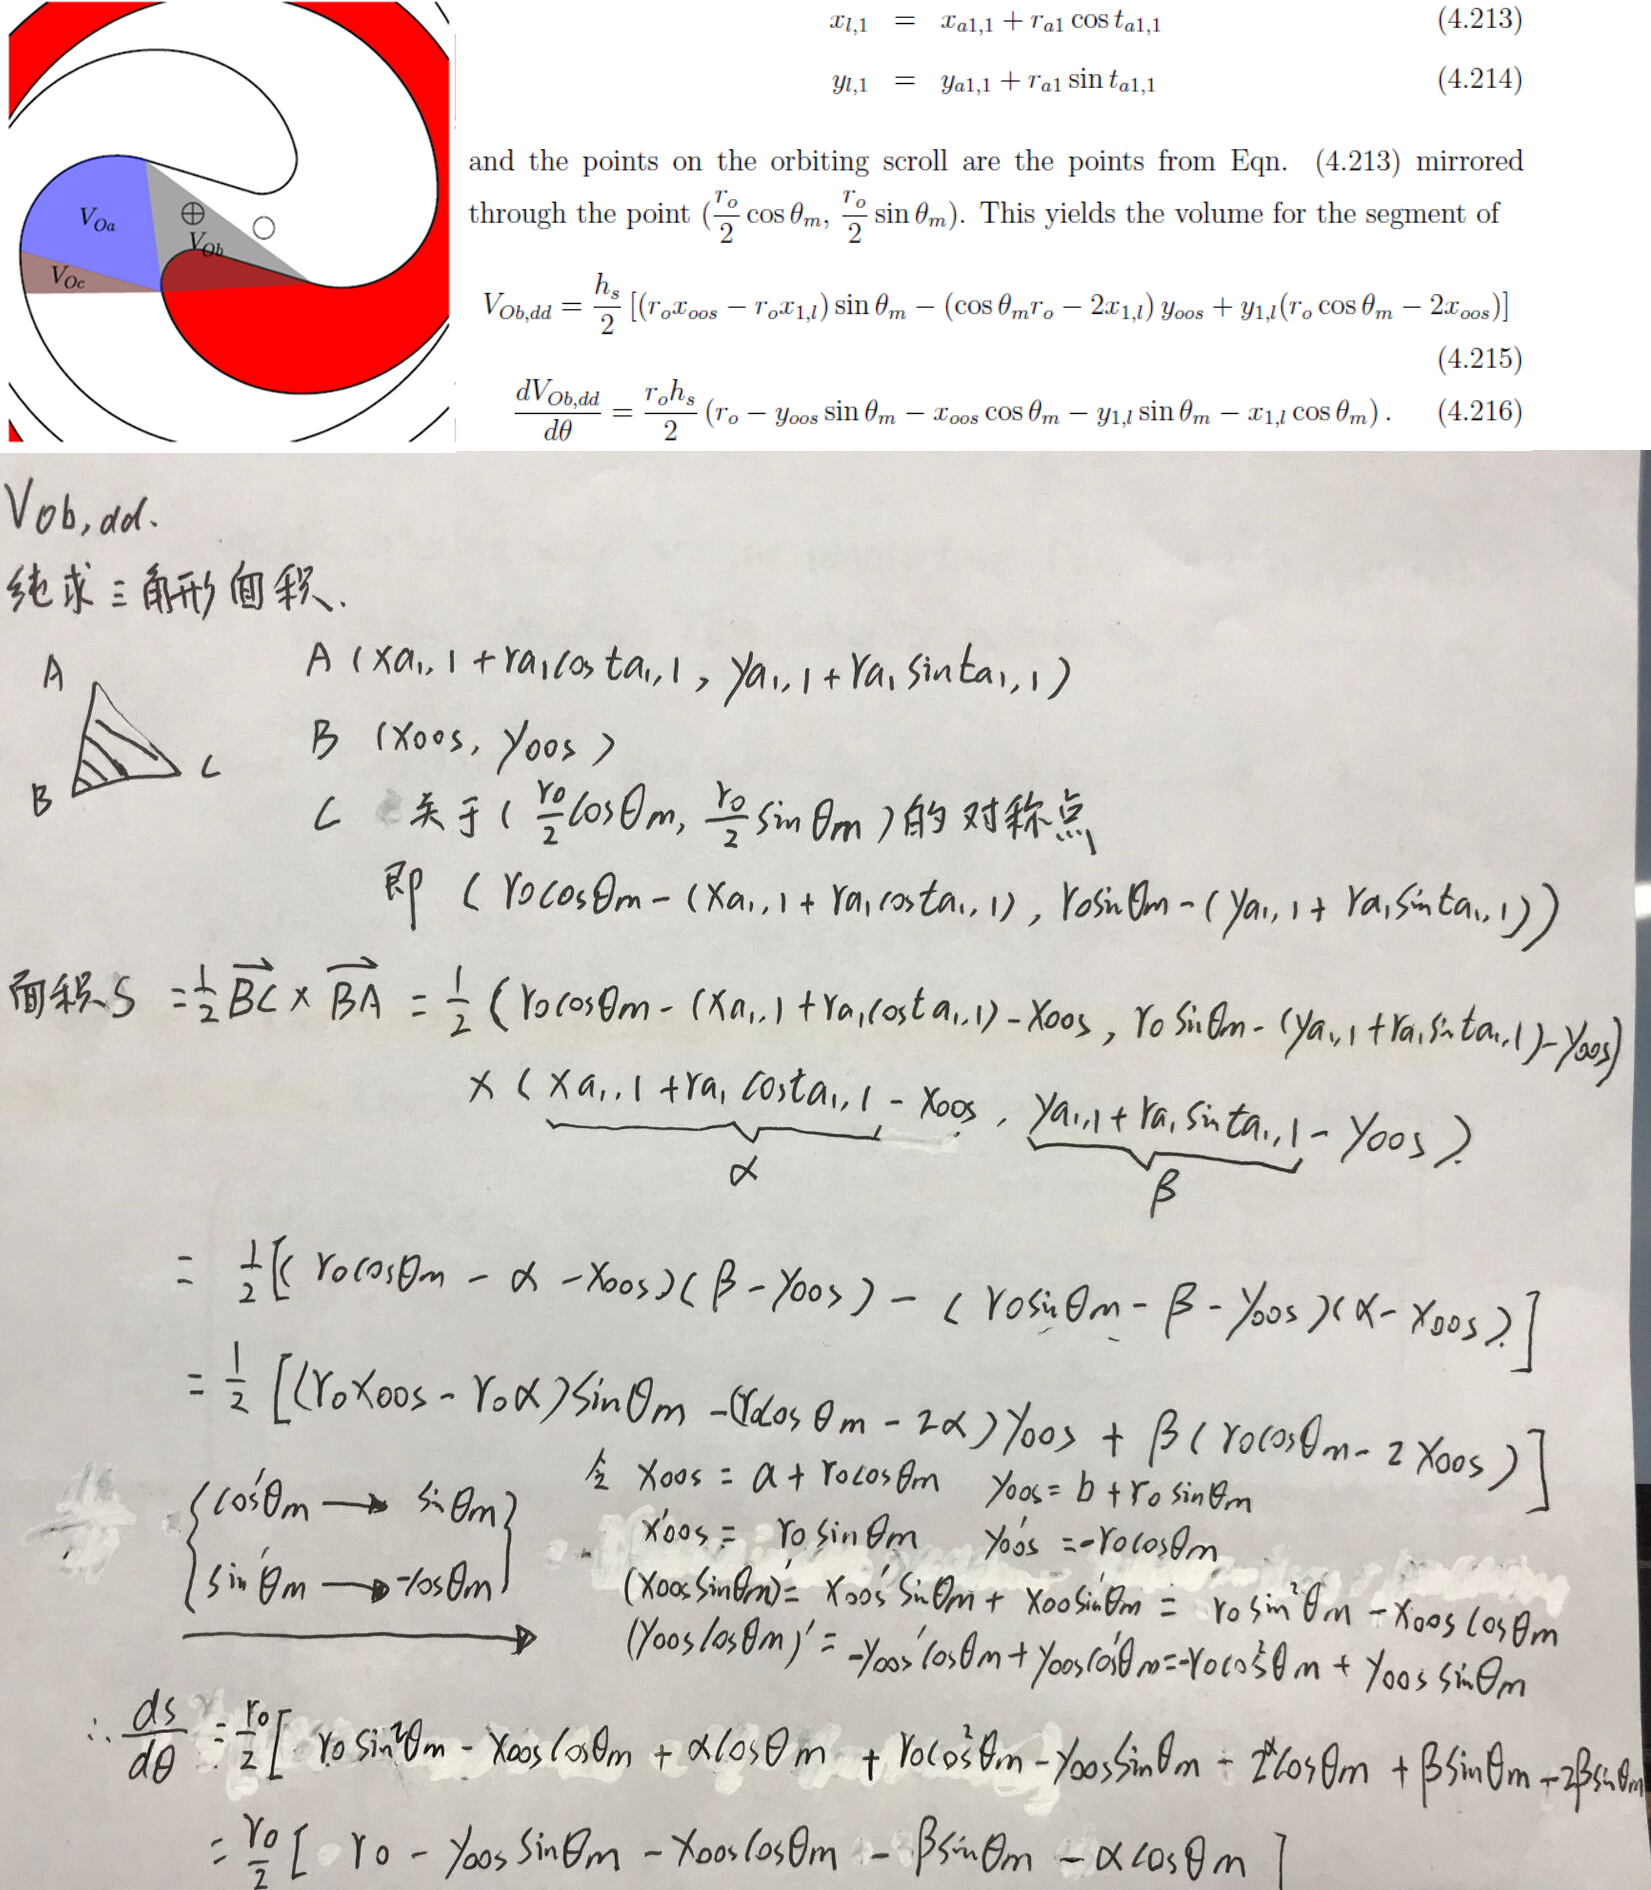 x_{l,1} = x_{a1,1} + r_{a1} cos t_{a1,1} (4.213)
y_{l,1} = y_{a1,1} + r_{a1} sin t_{a1,1} (4.214)
and the points on the orbiting scroll are the points from Eqn. (4.213) mirrored
through the point (\frac{r_o}{2} cos θ_m, \frac{r_o}{2} sin θ_m). This yields the volume for the segment of
V_{Ob,dd} = \frac{h_s}{2} [(r_o x_{oos} − r_o x_{1,l}) sin θ_m − (cos θ_m r_o − 2x_{1,l}) y_{oos} + y_{1,l}(r_o cos θ_m − 2x_{oos})]
(4.215)
\frac{dV_{Ob,dd}}{dθ} = \frac{r_o h_s}{2} (r_o − y_{oos} sin θ_m − x_{oos} cos θ_m − y_{1,l} sin θ_m − x_{1,l} cos θ_m) . (4.216)
V_{Oa}
V_{Ob}
V_{Oc}
V_{ob,dd}.
纯求三角形面积.
A
B
C
A (x_{a1,1} + r_{a1} cos t_{a1,1}, y_{a1,1} + r_{a1} sin t_{a1,1})
B (x_{oos}, y_{oos})
C 关于 (\frac{r_o}{2} cosθ_m, \frac{r_o}{2} sinθ_m) 的对称点
即 (r_o cosθ_m − (x_{a1,1} + r_{a1} cos t_{a1,1}), r_o sinθ_m − (y_{a1,1} + r_{a1} sin t_{a1,1}))
面积S = \frac{1}{2} \vec{BC} × \vec{BA} = \frac{1}{2} (r_o cosθ_m − (x_{a1,1} + r_{a1} cos t_{a1,1}) − x_{oos}, r_o sinθ_m − (y_{a1,1} + r_{a1} sin t_{a1,1}) − y_{oos})
× (x_{a1,1} + r_{a1} cos t_{a1,1} − x_{oos}, y_{a1,1} + r_{a1} sin t_{a1,1} − y_{oos}).
α β
= \frac{1}{2} [(r_o cosθ_m − α − x_{oos})(β − y_{oos}) − (r_o sinθ_m − β − y_{oos})(α − x_{oos}).]
= \frac{1}{2} [(r_o x_{oos} − r_o α) sinθ_m − (r_o cosθ_m − 2α) y_{oos} + β (r_o cosθ_m − 2x_{oos})]
令 x_{oos} = a + r_o cosθ_m y_{oos} = b + r_o sinθ_m
cos'θ_m → sinθ_m
x'_{oos} = r_o sinθ_m y'_{oos} = −r_o cosθ_m
sin'θ_m → −cosθ_m
(x_{oos} sinθ_m)' = x_{oos}' sinθ_m + x_{oo} sin'θ_m = r_o sin²θ_m − x_{oos} cosθ_m
(y_{oos} cosθ_m)' = −y_{oos}' cosθ_m + y_{oos} cos'θ_m = −r_o cos²θ_m + y_{oos} sinθ_m
∴ \frac{ds}{dθ} = \frac{r_o}{2} [ r_o sin²θ_m − x_{oos} cosθ_m + α cosθ_m + r_o cos²θ_m − y_{oos} sinθ_m − 2α cosθ_m + β sinθ_m − 2β sinθ_m
= \frac{r_o}{2} [ r_o − y_{oos} sinθ_m − x_{oos} cosθ_m − β sinθ_m − α cosθ_m ]